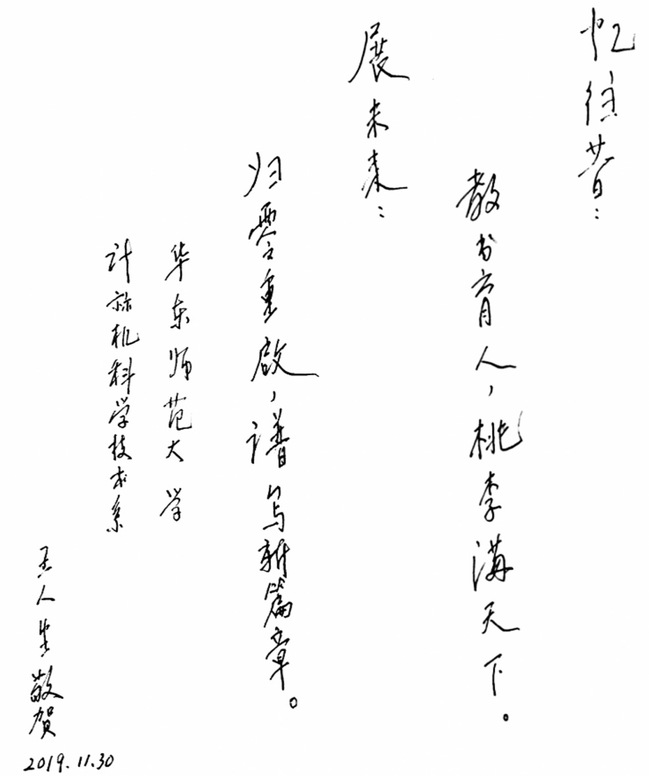 忆往昔：
教书育人，桃李满天下。
展未来：
归零重啟，谱写新篇章。
华东师范大学
计祘机科学技术系
王人生敬贺
2019.11.30